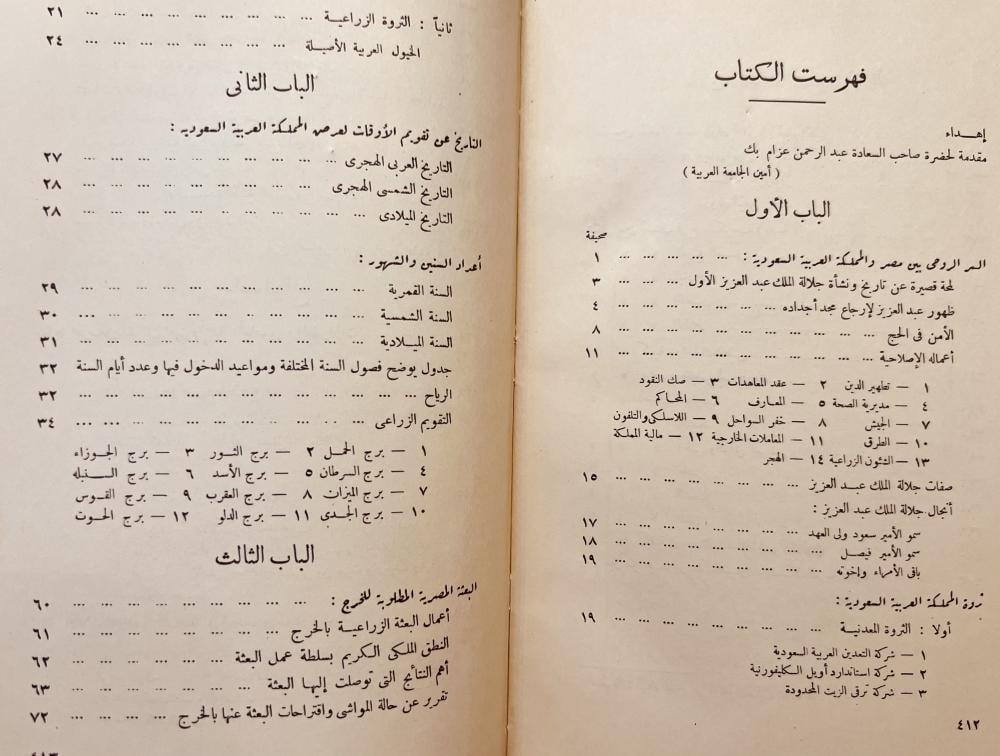 فهرست الكتاب
إهداء
مقدمة لحضرة صاحب السعادة عبد الرحمن عزام بك
( أمين الجامعة العربية )
الباب الأول
صحيفة
السر الروحى بين مصر والمملكة العربية السعودية : ... ... ... ... ... ١
لمحة قصيرة عن تاريخ ونشأة جلالة الملك عبد العزيز الأول ... ... ... ٣
ظهور عبد العزيز لإرجاع مجد أجداده ... ... ... ... ... ... ٤
الأمن فى الحج ... ... ... ... ... ... ... ... ... ... ٨
أعماله الإصلاحية ... ... ... ... ... ... ... ... ... ... ١١
١ — تطهير الدين ٢ — عقد المعاهدات ٣ — صك النقود
٤ — مديرية الصحة ٥ — المعارف ٦ — المحاكم
٧ — الجيش ٨ — خفر السواحل ٩ — اللاسلكى والتلفون
١٠ — الطرق ١١ — المعاملات الخارجية ١٢ — مالية المملكة
١٣ — الشئون الزراعية ١٤ — الهجر
صفات جلالة الملك عبد العزيز ... ... ... ... ... ... ... ١٥
أنجال جلالة الملك عبد العزيز :
سمو الأمير سعود ولى العهد ... ... ... ... ... ... ... ١٧
سمو الأمير فيصل ... ... ... ... ... ... ... ... ١٨
باقى الأمراء وإخوته ... ... ... ... ... ... ... ... ١٩
ثروة المملكة العربية السعودية :
أولا : الثروة المعدنية ... ... ... ... ... ... ... ... ١٩
١ — شركة التعدين العربية السعودية
٢ — شركة استاندارد أويل الكليفورنية
٣ — شركة ترقى الزيت المحدودة
٤١٢
ثانياً : الثروة الزراعية ... ... ... ... ... ... ... ... ٢١
الخيول العربية الأصيلة ... ... ... ... ... ... ... ... ٢٤
الباب الثانى
التاريخ عن تقويم الأوقات لعرض المملكة العربية السعودية :
التاريخ العربى الهجرى ... ... ... ... ... ... ... ... ... ٢٧
التاريخ الشمسى الهجرى ... ... ... ... ... ... ... ... ... ٢٨
التاريخ الميلادى ... ... ... ... ... ... ... ... ... ... ٢٨
أعداد السنين والشهور :
السنة القمرية ... ... ... ... ... ... ... ... ... ... ٢٩
السنة الشمسية ... ... ... ... ... ... ... ... ... ... ٣٠
السنة الميلادية ... ... ... ... ... ... ... ... ... ... ٣١
جدول يوضح فصول السنة المختلفة ومواعيد الدخول فيها وعدد أيام السنة ٣٢
الرياح ... ... ... ... ... ... ... ... ... ... ... ٣٢
التقويم الزراعى ... ... ... ... ... ... ... ... ... ... ٣٤
١ — برج الحمل ٢ — برج الثور ٣ — برج الجوزاء
٤ — برج السرطان ٥ — برج الأسد ٦ — برج السنبلة
٧ — برج الميزان ٨ — برج العقرب ٩ — برج القوس
١٠ — برج الجدى ١١ — برج الدلو ١٢ — برج الحوت
الباب الثالث
البعثة المصرية المطلوبة للخرج : ... ... ... ... ... ... ... ... ٦٠
أعمال البعثة الزراعية بالخرج ... ... ... ... ... ... ... ... ٦١
النطق الملكى الكريم بسلطة عمل البعثة ... ... ... ... ... ... ٦٢
أهم النتائج التى توصلت إليها البعثة ... ... ... ... ... ... ... ٦٣
تقرير عن حالة المواشى واقتراحات البعثة عنها بالخرج ... ... ... ... ٧٢
٤١٣